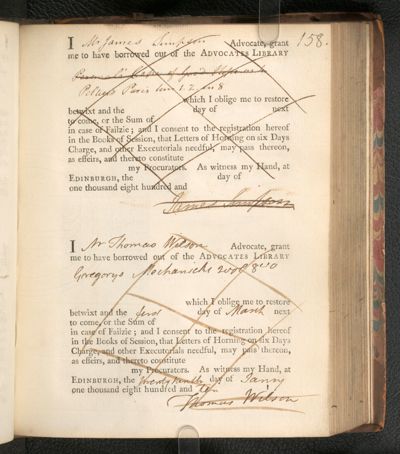 158.
I Mr James Simpson Advocate, grant
me to have borrowed out of the ADVOCATES LIBRARY
Pelage Paris
which I oblige me to restore
betwixt and the day of next
to come, or the Sum of
in case of Failzie; and I consent to the registration hereof
in the Books of Session, that Letters of Horning on six Days
Charge, and other Executorials needful, may pass thereon,
as effeirs, and thereto constitute
my Procurators. As witness my Hand, at
EDINBURGH, the day of
one thousand eight hundred and
James Simpson
I Mr Thomas Wilson Advocate, grant
me to have borrowed out of the ADVOCATES LIBRARY
Gregorys Mechanicks 2 vol 8vo
which I oblige me to restore
betwixt and the first day of March next
to come, or the Sum of
in case of Failzie; and I consent to the registration hereof
in the Books of Session, that Letters of Horning on six Days
Charge, and other Executorials needful, may pass thereon,
as effeirs, and thereto constitute
my Procurators. As witness my Hand, at
EDINBURGH, the day of Janry
one thousand eight hundred and ten
Thomas Wilson